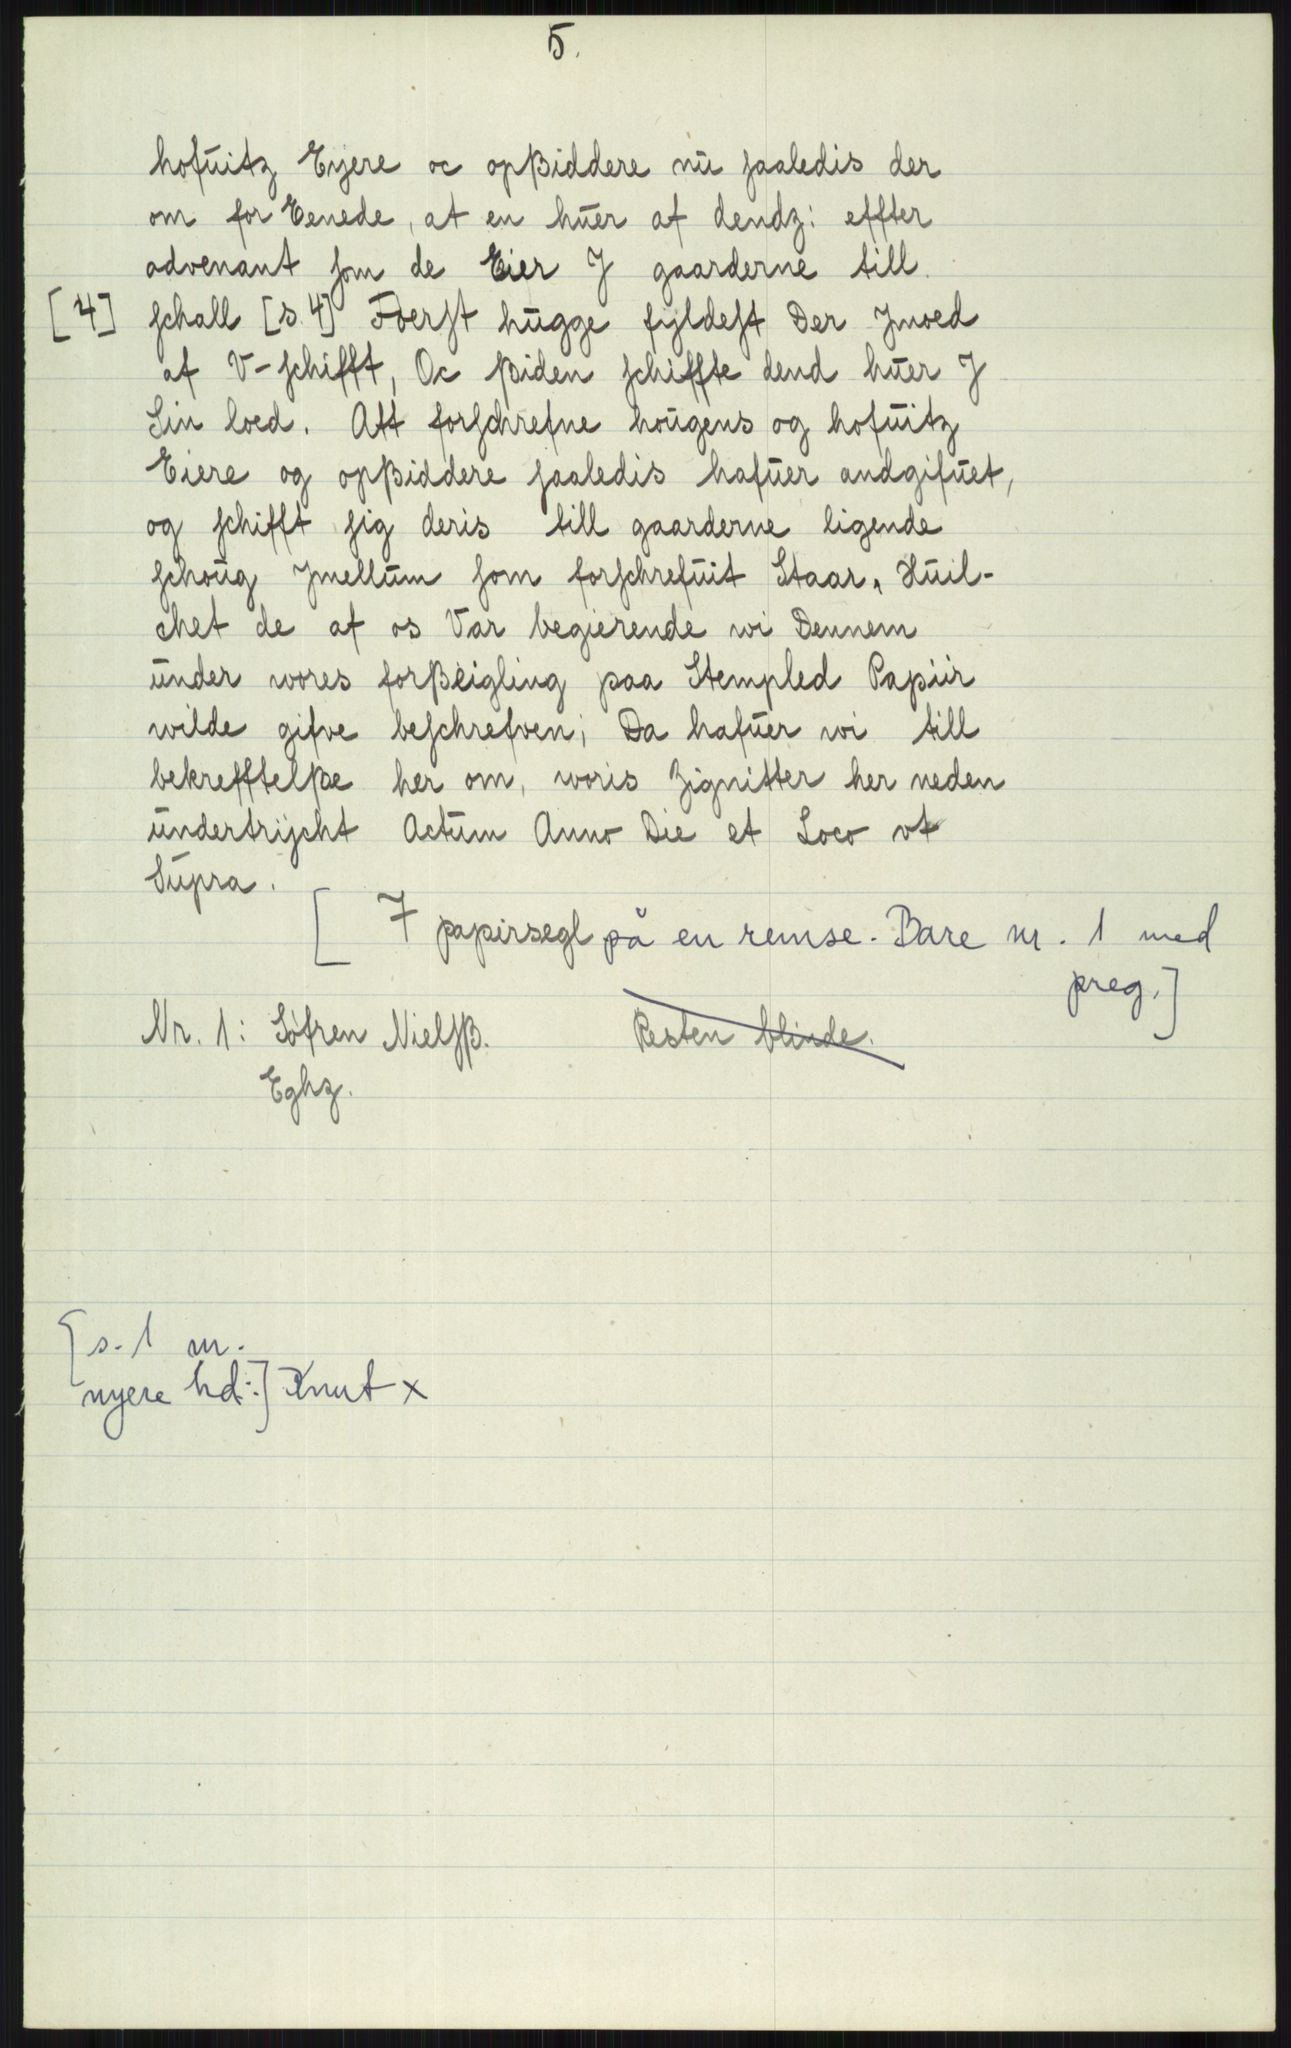 5.
hofuitz Eyere oc opßiddere nu saaledis der
om for Eenede, at en huer af dendz: effter
advenant som de Eier J gaarderne till
[4] schall [s. 4] Foerst hugge fyldest Der Jmoed
af V-schifft, Oc ßiden schiffte dend huer J
Sin loed. Att forschrefne hougens og hofuitz
Eiere og opßiddere saaledis hafuer andgifuet,
og schifft sig deris till gaarderne ligende
schoug Jmellum som forschrefuit Staar, Huil-
chet de af os Var begierende wi Dennem
under wores forßeigling paa Stempled Papiir
wilde gifve beschrefven; Da hafuer wi till
bekrefftelße her om, woris Zignitter her neden
undertrÿcht Actum Anno Die et Loco vt
Supra.
[7 papirsegl på en remse. Bare nr. 1 med
preg.]
Nr. 1: Søfren Nielsß. Resten blinde.
Eghz.
[s. 1 m.
nyere hd:] Knut x